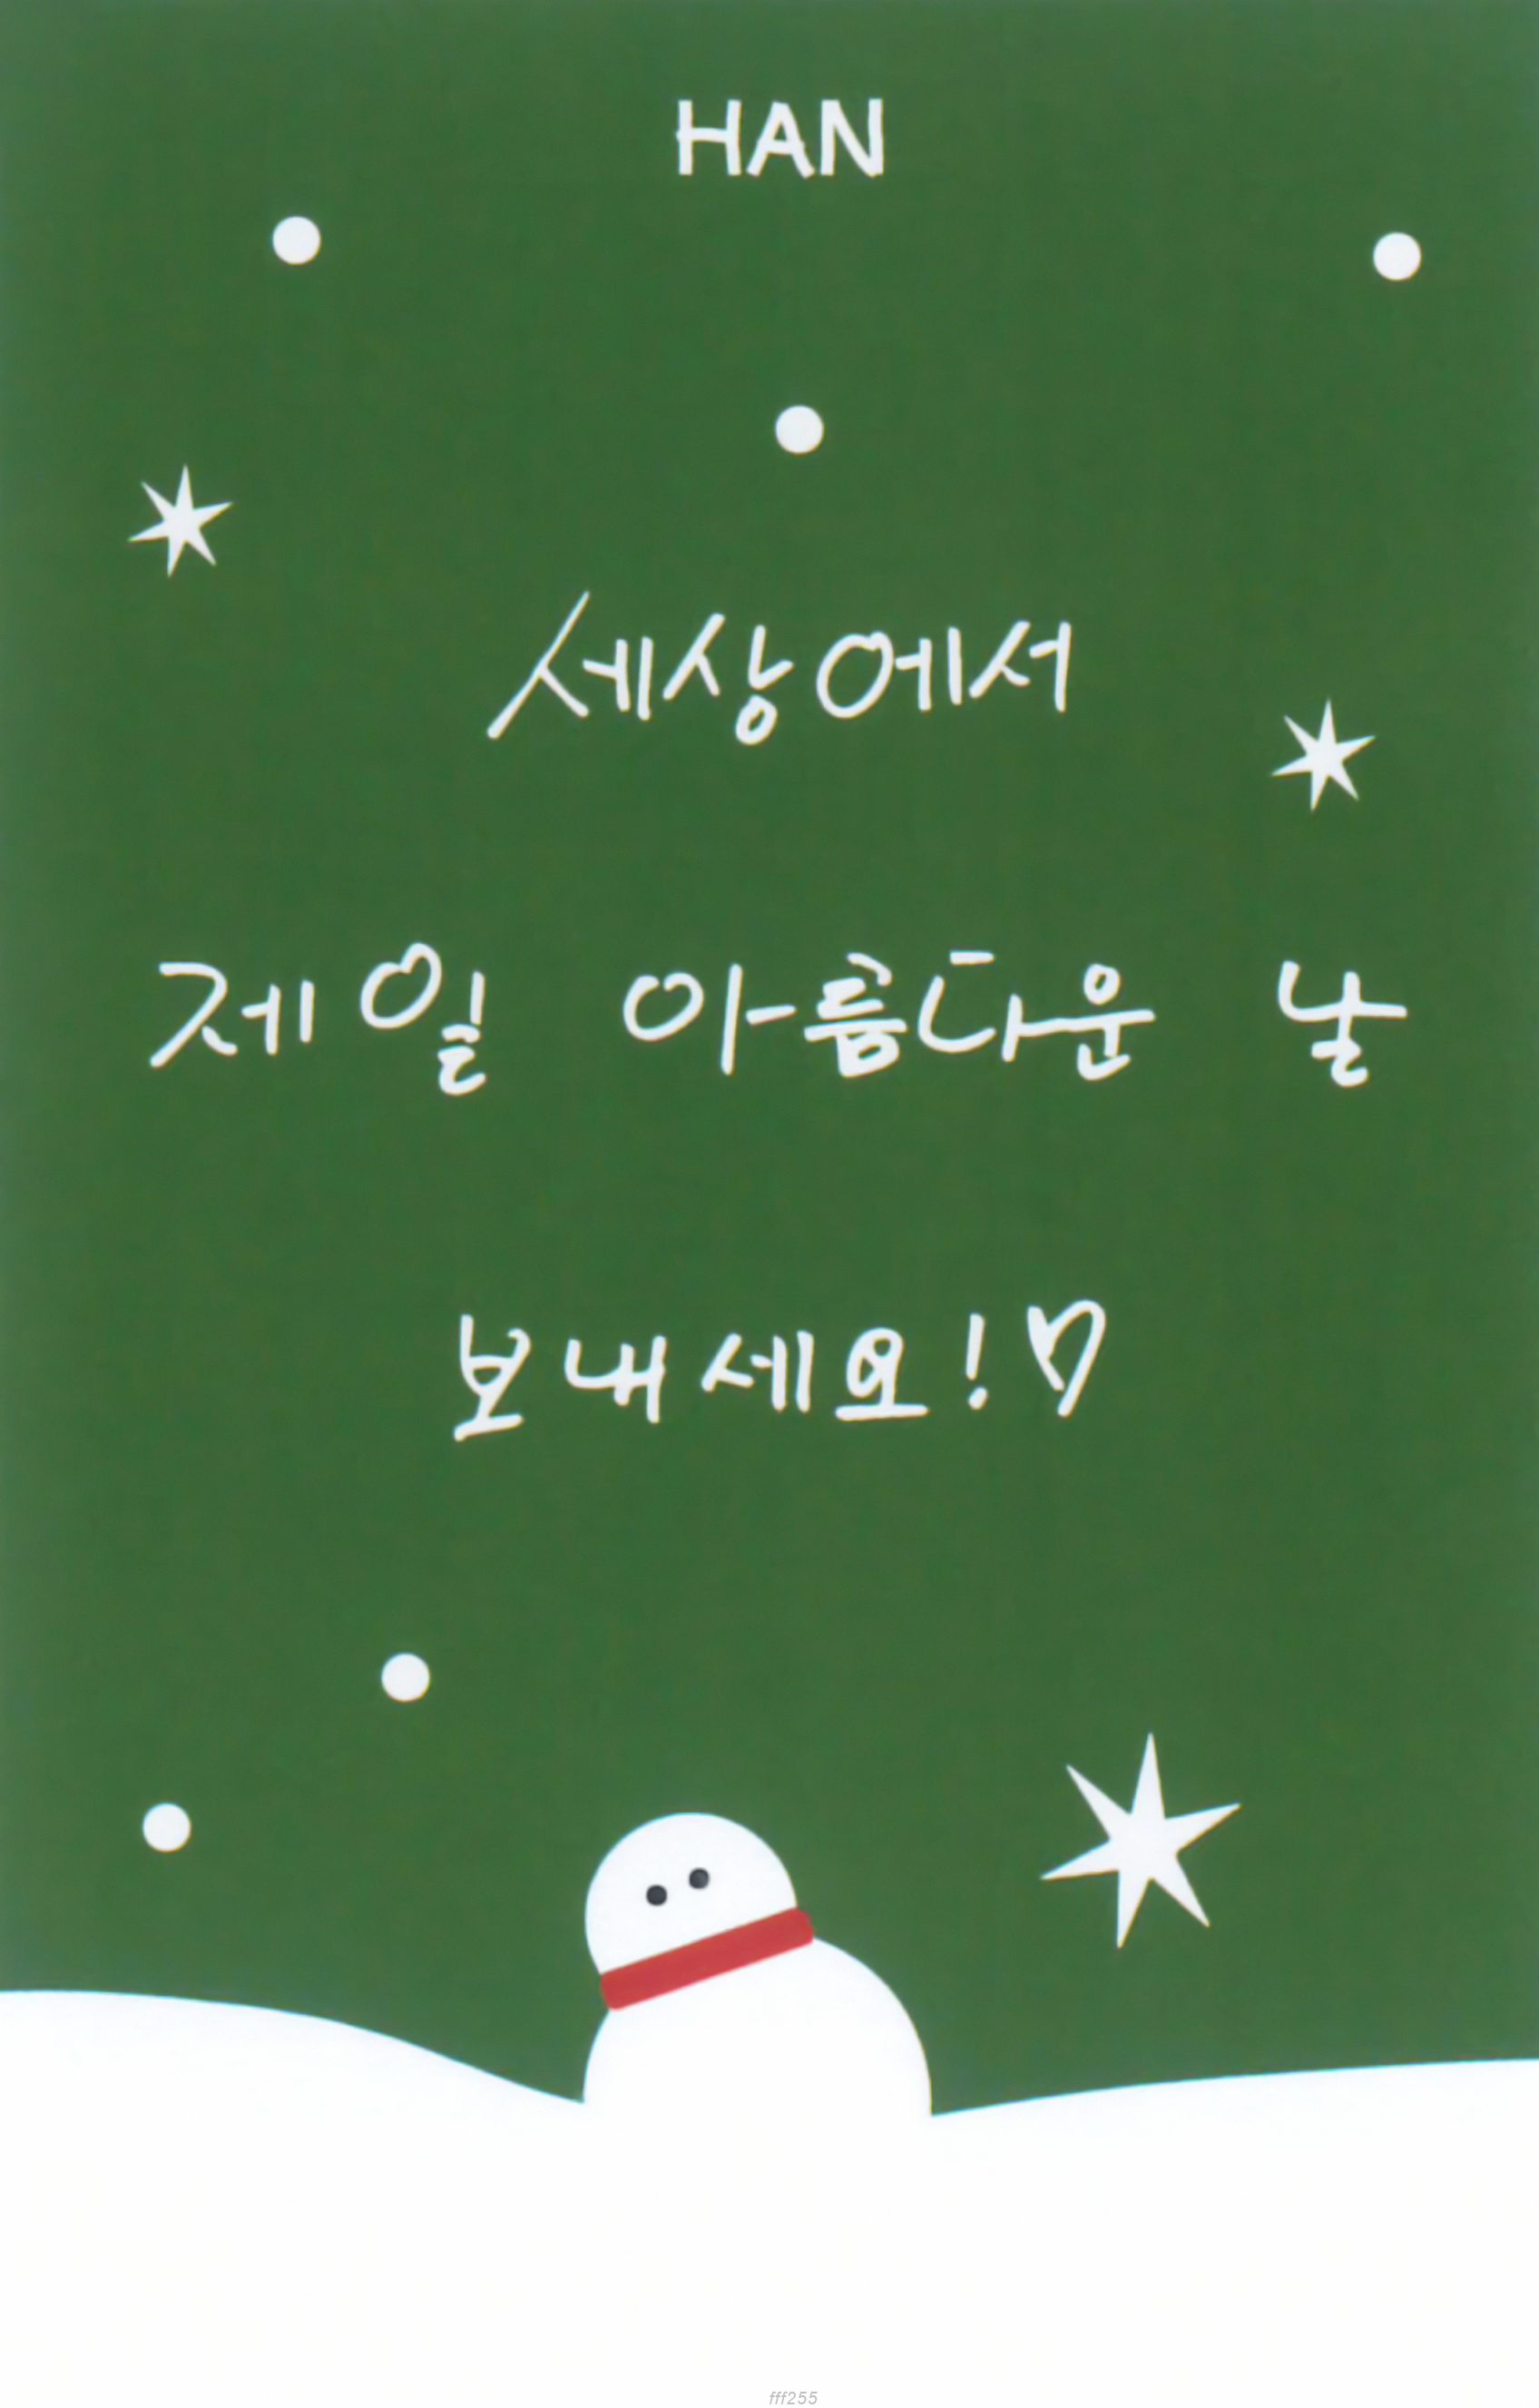 HAN
세상에서
제일 아름다운 날
보내세요!♡
fff255